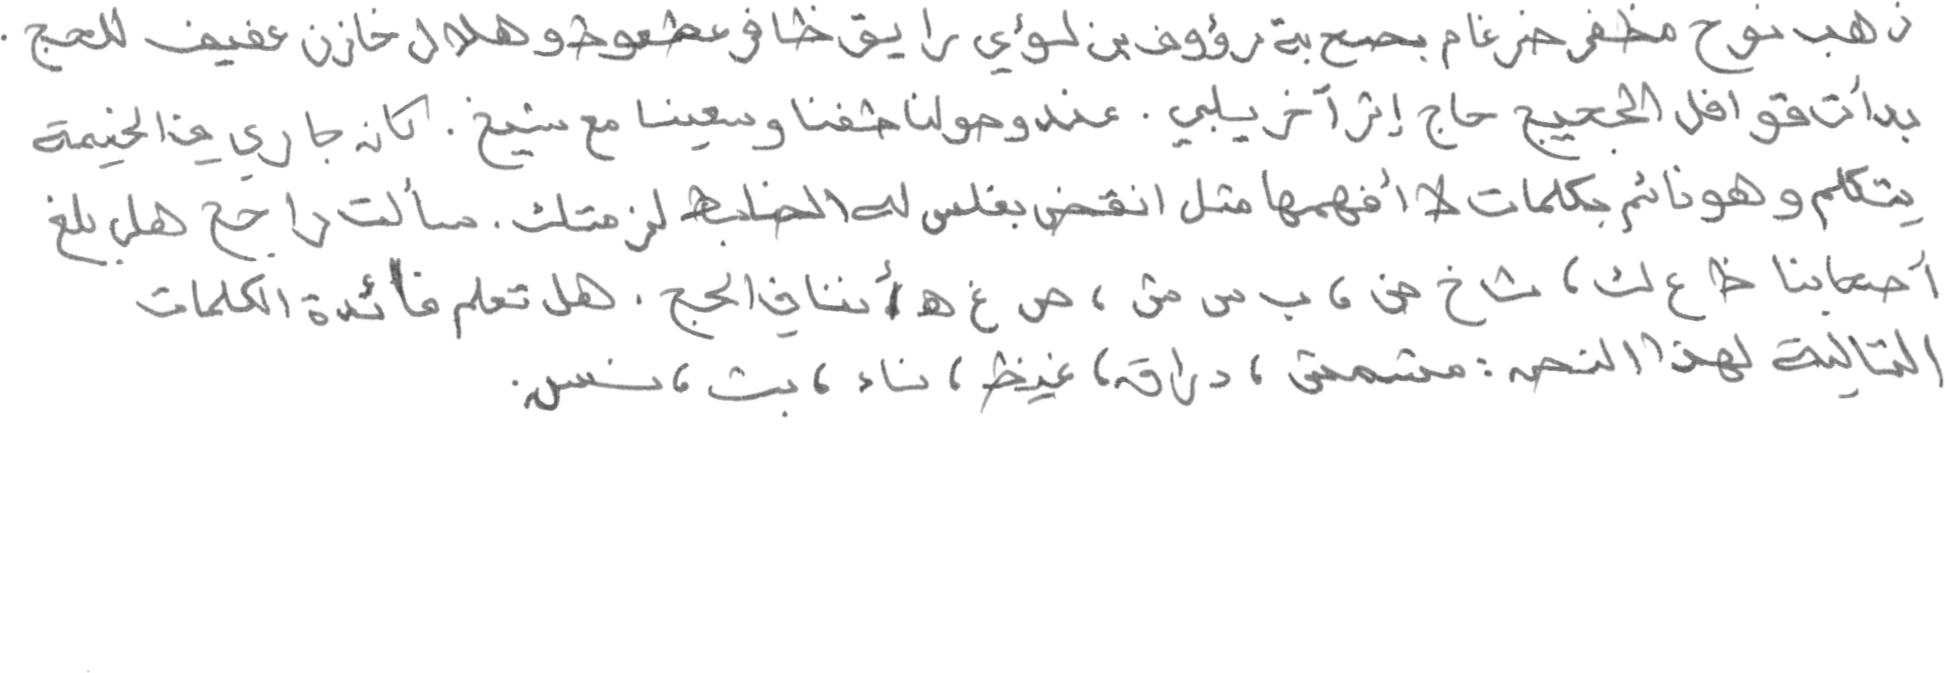 ذهب نوح مظفر ضرغام بصحبة رؤوف بن لؤي رايق ظافر عطعوط وهلال خازن عفيف للحج .
بدأت قوافل الحجيج حاج إثر آخر يلبي . عند وصولنا طفنا وسعينا مع شيخ . كان جاري في الخيمة
يتكلم وهو نائم بكلمات لا أفهمها مثل انقض بغلس له الضابط لزمتك . سألت راجح هل بلغ
أصحابنا ظ ع ك ، ث خ ض ، ب س ش ، ص غ ه أننا في الحج . هل تعلم فائدة الكلمات
التالية لهذا النص : مشمش ، دراق ، غيظ ، ناء ، بث ، نسس .